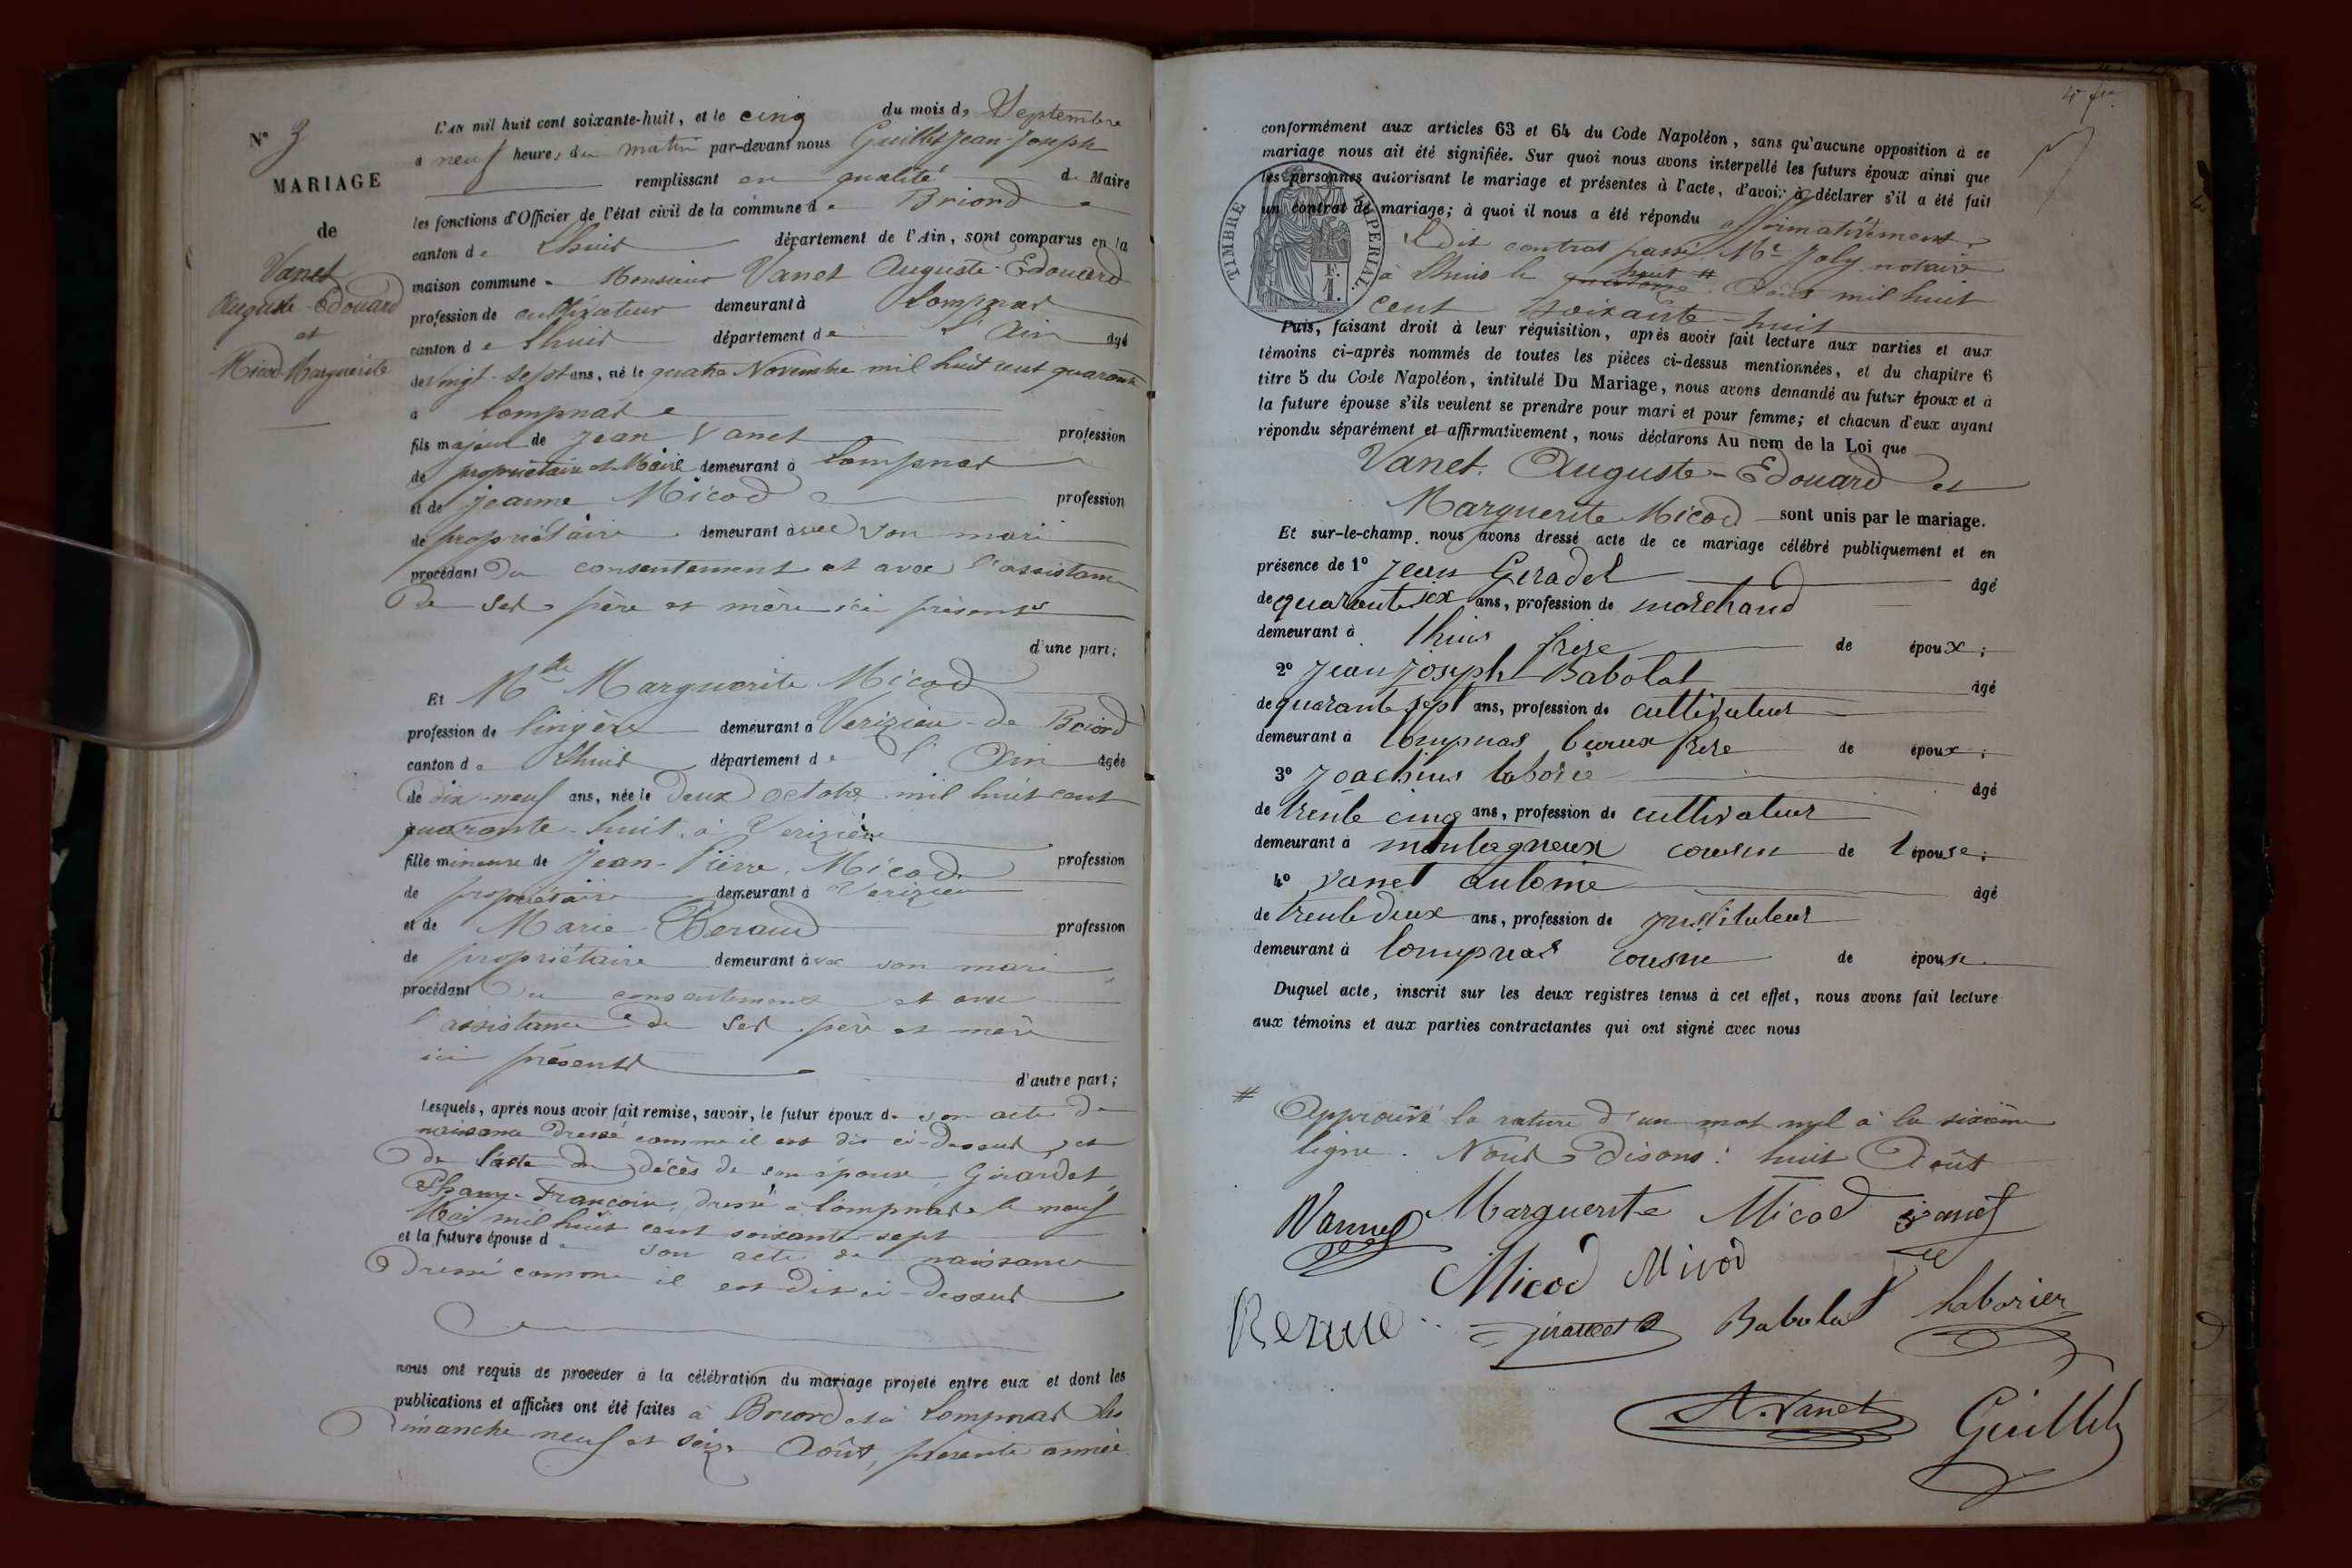 N° 3
MARIAGE
de
Vanet
Auguste-Edouard
et
Micod Marguerite
L'AN mil huit cent soixante-huit, et le cinq du mois de Septembre
à neuf heures du matin par-devant nous Guillet Jean Joseph
remplissant en qualité de Maire
les fonctions d'Officier de l'état civil de la commune de Briord
canton de Lhuis département de l'Ain, sont comparus en la
maison commune Monsieur Vanet Auguste-Edouard
profession de cultivateur demeurant à Lompnas
canton de Lhuis département de l'Ain âgé
de vingt-sept ans, né le quatre Novembre mil huit cent quarante
à Lompnas
fils majeur de Jean Vanet profession
de propriétaire et Maire demeurant à Lompnas
et de Jeanne Micod profession
de propriétaire demeurant avec son mari
procédant du consentement et avec l'assistance
de ses père et mère ici présents
d'une part;
Et Mlle Marguerite Micod
profession de lingère demeurant à Verizieu de Briord
canton de Lhuis département de l'Ain âgée
de dix-neuf ans, née le deux octobre mil huit cent
quarante-huit, à Verizieu
fille mineure de Jean-Pierre Micod profession
de propriétaire demeurant à Verizieu
et de Marie Beraud profession
de propriétaire demeurant avec son mari
procédant du consentement et avec
l'assistance de ses père et mère
ici présents
d'autre part;
Lesquels, après nous avoir fait remise, savoir, le futur époux de son acte de
naissance dressé comme il est dit ci-dessus, et
de l'acte de décès de son épouse, Girardet,
Françoise, dressé à Lompnas le neuf
Mai mil huit cent soixante sept
et la future épouse de son acte de naissance
dressé comme il est dit ci-dessus
nous ont requis de procéder à la célébration du mariage projeté entre eux et dont les
publications et affiches ont été faites à Briord et à Lompnas les
Dimanche neuf et seize Août, présente année
conformément aux articles 63 et 64 du Code Napoléon, sans qu'aucune opposition à ce
mariage nous ait été signifiée. Sur quoi nous avons interpellé les futurs époux ainsi que
les personnes autorisant le mariage et présentes à l'acte, d'avoir à déclarer s'il a été fait
un contrat de mariage; à quoi il nous a été répondu affirmativement
TIMBRE IMPERIAL. 1 F.
Ledit contrat passé Me Joly notaire
à Lhuis le huit # Août mil huit
cent soixante-huit
Puis, faisant droit à leur réquisition, après avoir fait lecture aux parties et aux
témoins ci-après nommés de toutes les pièces ci-dessus mentionnées, et du chapitre 6
titre 5 du Code Napoléon, intitulé Du Mariage, nous avons demandé au futur époux et à
la future épouse s'ils veulent se prendre pour mari et pour femme; et chacun d'eux ayant
répondu séparément et affirmativement, nous déclarons Au nom de la Loi que
Vanet Auguste-Edouard et
Marguerite Micod sont unis par le mariage.
Et sur-le-champ, nous avons dressé acte de ce mariage célébré publiquement et en
présence de 1° Jean Geradet âgé
de quarante six ans, profession de marchand
demeurant à lhuis frère de époux;
2° Jean Joseph Babolat âgé
de quarante sept ans, profession de cultivateur
demeurant à lompnas beaux frere de époux;
3° Joachim laborie âgé
de trente cinq ans, profession de cultivateur
demeurant à montagnieux cousin de l'épouse;
4° Vanet antoine âgé
de trente deux ans, profession de instituteur
demeurant à lompnas cousin de épouse.
Duquel acte, inscrit sur les deux registres tenus à cet effet, nous avons fait lecture
aux témoins et aux parties contractantes qui ont signé avec nous
# Approuvé la rature d'un mot nul à la sixième
ligne. Nous disons: huit Août
Vannet Marguerite Micod Vanet
Micod Micod
Babolat Laborier
A. Vanet Guillet